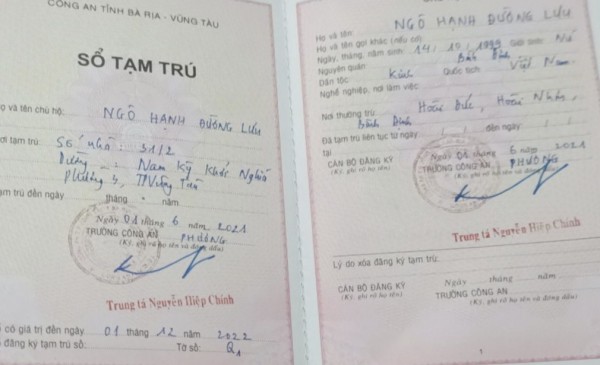 CÔNG AN TỈNH BÀ RỊA - VŨNG TÀU
SỔ TẠM TRÚ
ọ và tên chủ hộ: NGÔ HẠNH ĐƯỜNG LƯU
ơi tạm trú: Số nhà: 31/2
Đường Nam Kỳ Khởi Nghĩa
phường 3, TP Vũng Tàu
tạm trú đến ngày tháng năm
Ngày 01 tháng 6 năm 2021
TRƯỞNG CÔNG AN PHƯỜNG
(Ký, ghi rõ họ tên và đóng dấu)
Trung tá Nguyễn Hiệp Chinh
ó có giá trị đến ngày 01 tháng 12 năm 2022
đăng ký tạm trú số: Tờ số:
Họ và tên: NGÔ HẠNH ĐƯỜNG LƯU
Họ và tên gọi khác (nếu có):
Ngày, tháng, năm sinh: 14/10/1999 Giới tính: Nữ
Nguyên quán: Bình Định
Dân tộc: Kinh Quốc tịch: Việt Nam
Nghề nghiệp, nơi làm việc:
Nơi thường trú: Hoài Đức, Hoài Nhơn,
Bình Định
Đã tạm trú liên tục từ ngày / / đến ngày / /
tại
Ngày 01 tháng 6 năm 2021
CÁN BỘ ĐĂNG KÝ TRƯỞNG CÔNG AN PHƯỜNG
(Ký, ghi rõ họ tên) (Ký, ghi rõ họ tên và đóng dấu)
Trung tá Nguyễn Hiệp Chinh
Lý do xóa đăng ký tạm trú:
Ngày tháng năm
CÁN BỘ ĐĂNG KÝ TRƯỞNG CÔNG AN
(Ký, ghi rõ họ tên) (Ký, ghi rõ họ tên và đóng dấu)
1